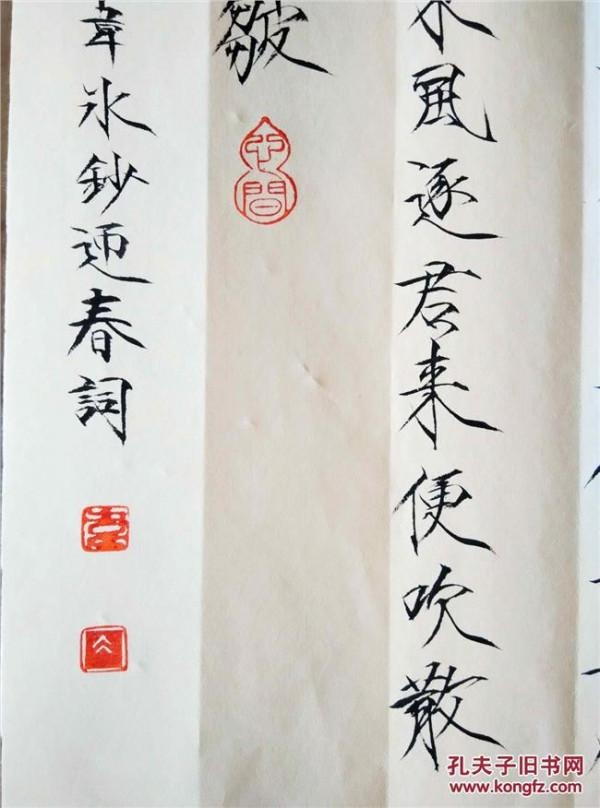 風逐君来便吹散
皺
韋冰鈔迎春詞
孔夫子旧书网
www.kongfz.com